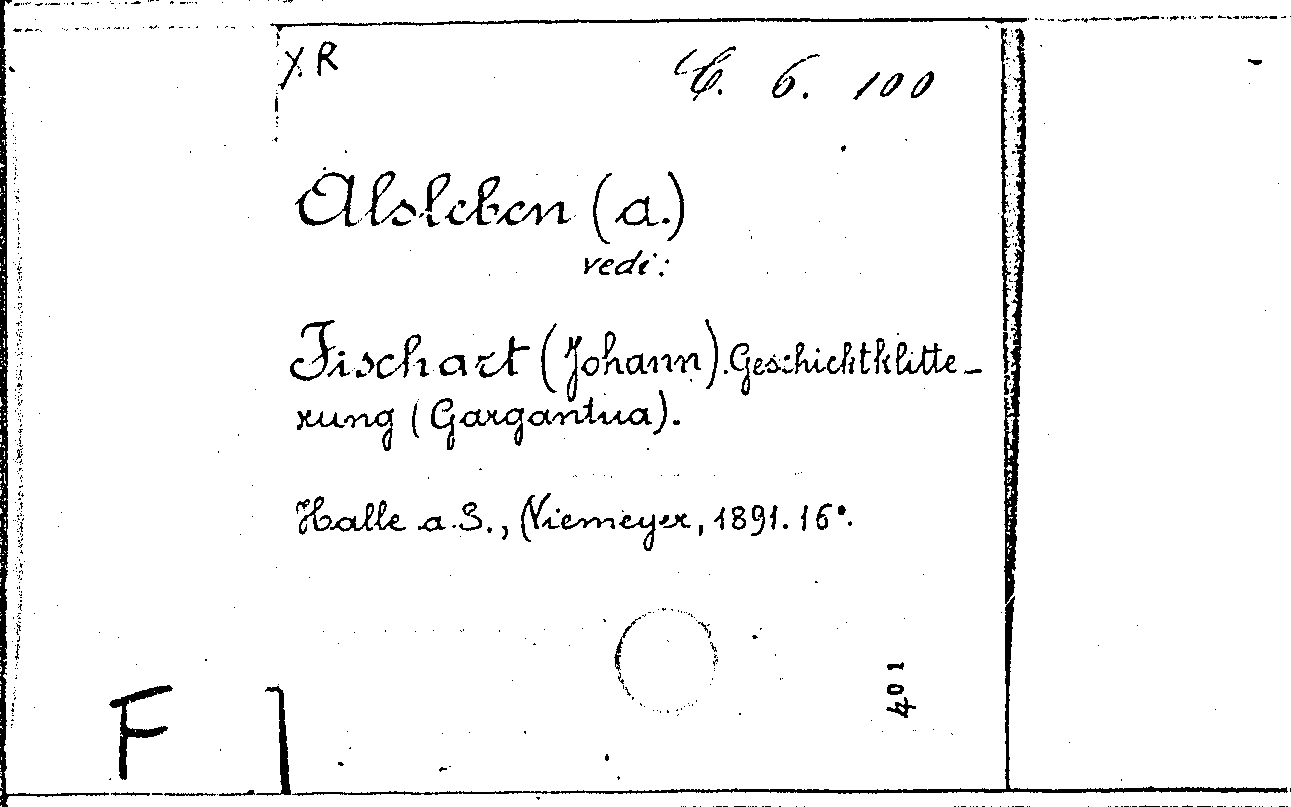 y. R
C. 6. 100
Alsleben (a.)
vedi:
Fischart (Johann). Geschichtklitte-
rung (Gargantua).
Halle a. S., Niemeyer, 1891. 16°.
401
F